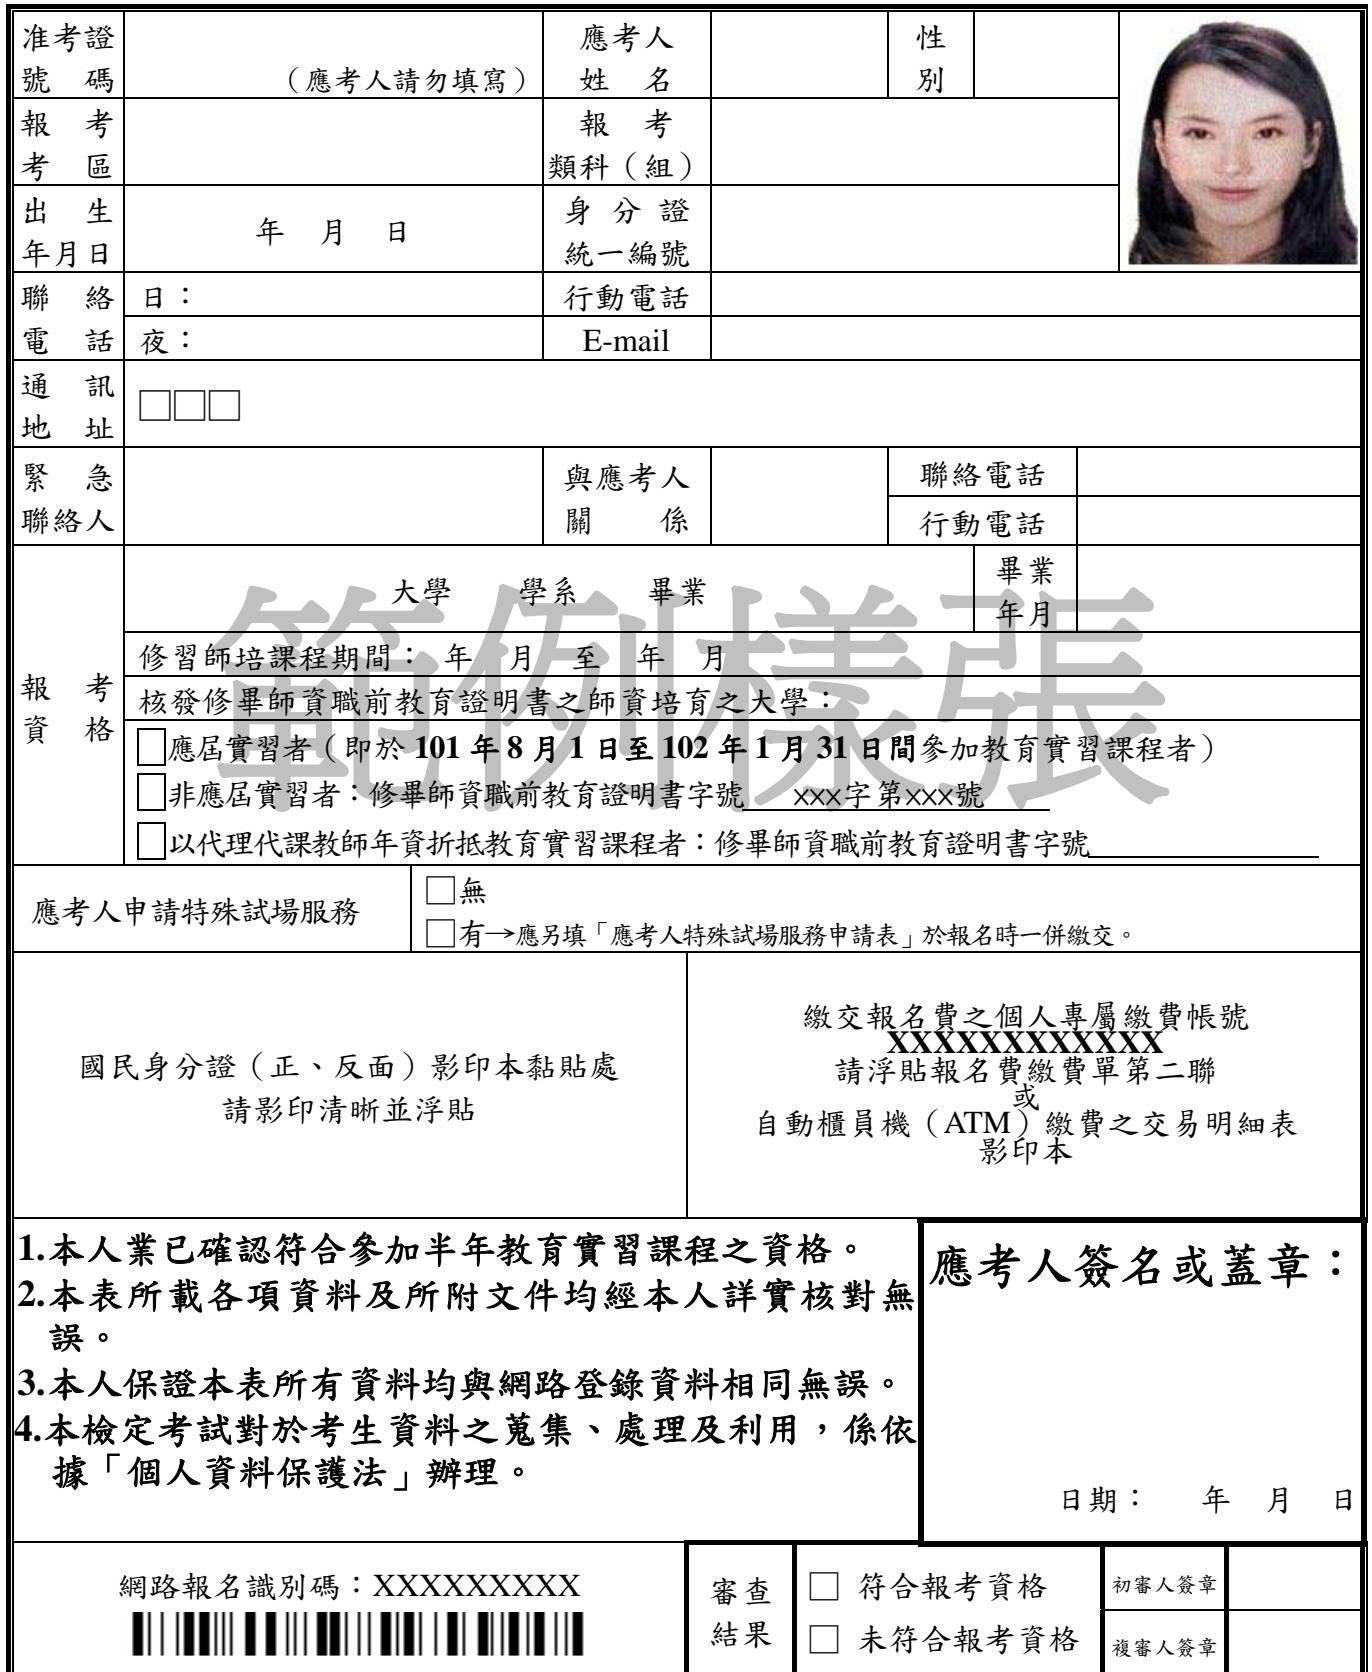 准考證
號 碼
（應考人請勿填寫）
應考人
姓 名
性
別
報 考
考 區
報 考
類科（組）
出 生
年月日
年 月 日
身 分 證
統一編號
聯 絡
電 話
日：
行動電話
夜：
E-mail
通 訊
地 址
□□□
緊 急
聯絡人
與應考人
關 係
聯絡電話
行動電話
報 考
資 格
大學 學系 畢業
畢業
年月
修習師培課程期間： 年 月 至 年 月
核發修畢師資職前教育證明書之師資培育之大學：
□應屆實習者（即於 101 年 8 月 1 日至 102 年 1 月 31 日間參加教育實習課程者）
□非應屆實習者：修畢師資職前教育證明書字號 xxx字第xxx號
□以代理代課教師年資折抵教育實習課程者：修畢師資職前教育證明書字號
範例樣張
應考人申請特殊試場服務
□無
□有→應另填「應考人特殊試場服務申請表」於報名時一併繳交。
國民身分證（正、反面）影印本黏貼處
請影印清晰並浮貼
繳交報名費之個人專屬繳費帳號
XXXXXXXXXXXX
請浮貼報名費繳費單第二聯
或
自動櫃員機（ATM）繳費之交易明細表
影印本
1.本人業已確認符合參加半年教育實習課程之資格。
2.本表所載各項資料及所附文件均經本人詳實核對無
誤。
3.本人保證本表所有資料均與網路登錄資料相同無誤。
4.本檢定考試對於考生資料之蒐集、處理及利用，係依
據「個人資料保護法」辦理。
應考人簽名或蓋章：
日期： 年 月 日
網路報名識別碼：XXXXXXXXX
審查
結果
□ 符合報考資格
□ 未符合報考資格
初審人簽章
複審人簽章